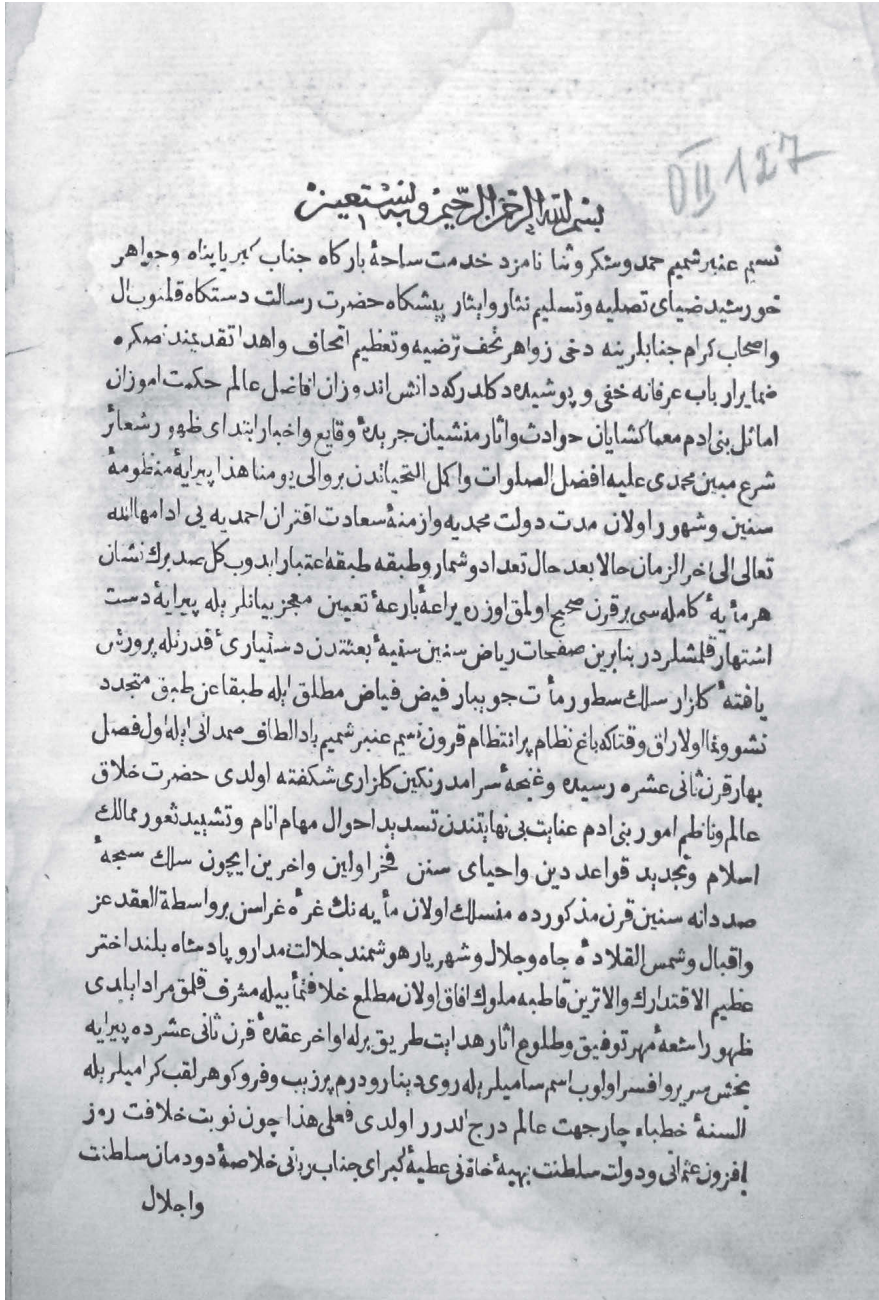 بسم الله الرحمن الرحيم وبه نستعين
DII 127
نسيم عنبر شميم حمد وشكر وثنا نامزد خدمت ساحهٔ بارکاه جناب کبریا پناه وجواهر
خورشید ضیای تصلیه وتسلیم نثار وایثار پیشکاه حضرت رسالت دستکاه قلنوب ال
واصحاب کرام جنابلرینه دخی زواهر تحف ترضیه وتعظیم اتحاف واهدا تقدیمندن صکره
ضمایر ارباب عرفانه خفی و پوشیده دکلدرکه دانش اندوزان افاضل عالم حکمت اموزان
اماثل بنی ادم معما کشایان حوادث واثار منشیان جریدهٔ وقایع واخبار ابتدای ظهور شعائر
شرع مبین محمدی علیه افضل الصلوات واکمل التحیاتدن بروالی یومنا هذا پیرایهٔ منظومهٔ
سنین وشهور اولان مدت دولت محمدیه وازمنهٔ سعادت اقتران احمدیه یی ادامها الله
تعالی الی اخر الزمان حالا بعد حال تعداد وشمار وطبقه طبقه اعتبار ایدوب کل صد برك نشان
هر مأیهٔ کامله سی بر قرن صحیح اولمق اوزره یراعهٔ بارعهٔ تعیین معجز بیانلر یله پیرایهٔ دست
اشتهار قلمشلردر بنابرین صفحات ریاض سنین سنیهٔ بعثتدن دستیاریٔ قدرتله پرورش
یافتهٔ کلزار سلك سطور مأت جویبار فیض فیاض مطلق ایله طبقا عن طبق متجدد
نشوونما اولاراق وقتاکه باغ نظام پر انتظام قرون نسیم عنبر شمیم باد الطاف صمدانی ایله اول فصل
بهار قرن ثانی عشره رسیده وغنجهٔ سرامد رنکین کلزاری شکفته اولدی حضرت خلاق
عالم وناظم امور بنی ادم عنایت بی نهایتندن تسدید احوال مهام انام وتشیید ثغور ممالك
اسلام وتجدید قواعد دین واحیای سنن فخر اولین واخرین ایچون سلك سبحهٔ
صد دانه سنین قرن مذکورده منسلك اولان مأیه نك غرهٔ غراسن بر واسطة العقد عز
واقبال وشمس القلادهٔ جاه وجلال وشهریار هوشمند جلالت مدار و پادشاه بلند اختر
عظیم الاقتدارك والاترین قاطبه ملوك افاق اولان مطلع خلافتمأبیله مشرف قلمق مراد ایلدی
ظهور اشعهٔ مهر توفیق وطلوع اثار هدایت طریق برله اواخر عقدهٔ قرن ثانی عشرده پیرایه
بخش سریر وافسر اولوب اسم سامیلر یله روی دینار ودرم پر زیب وفر وکوهر لقب کرامیلر یله
السنهٔ خطباء چار جهت عالم درج الدرر اولدی فعلی هذا چون نوبت خلافت روز
افزون عثمانی ودولت سلطنت بهیهٔ خاقانی عطیهٔ کبرای جناب ربانی خلاصهٔ دودمان سلطنت
واجلال